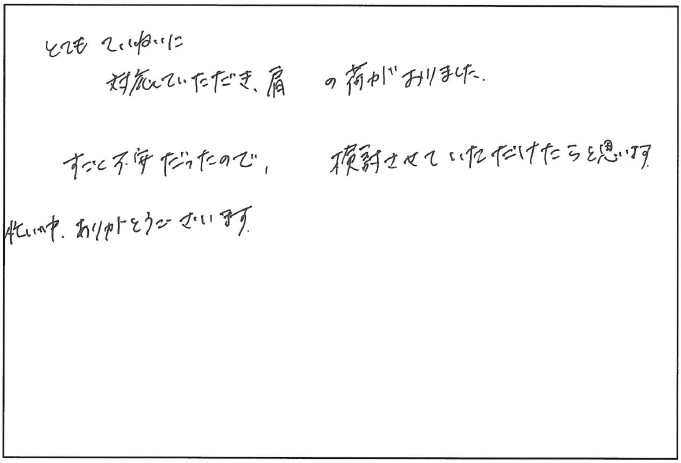 とても ていねいに
対応していただき、肩の荷がおりました。
すごく不安だったので、検討させていただけたらと思います
忙い中、ありがとうございます。